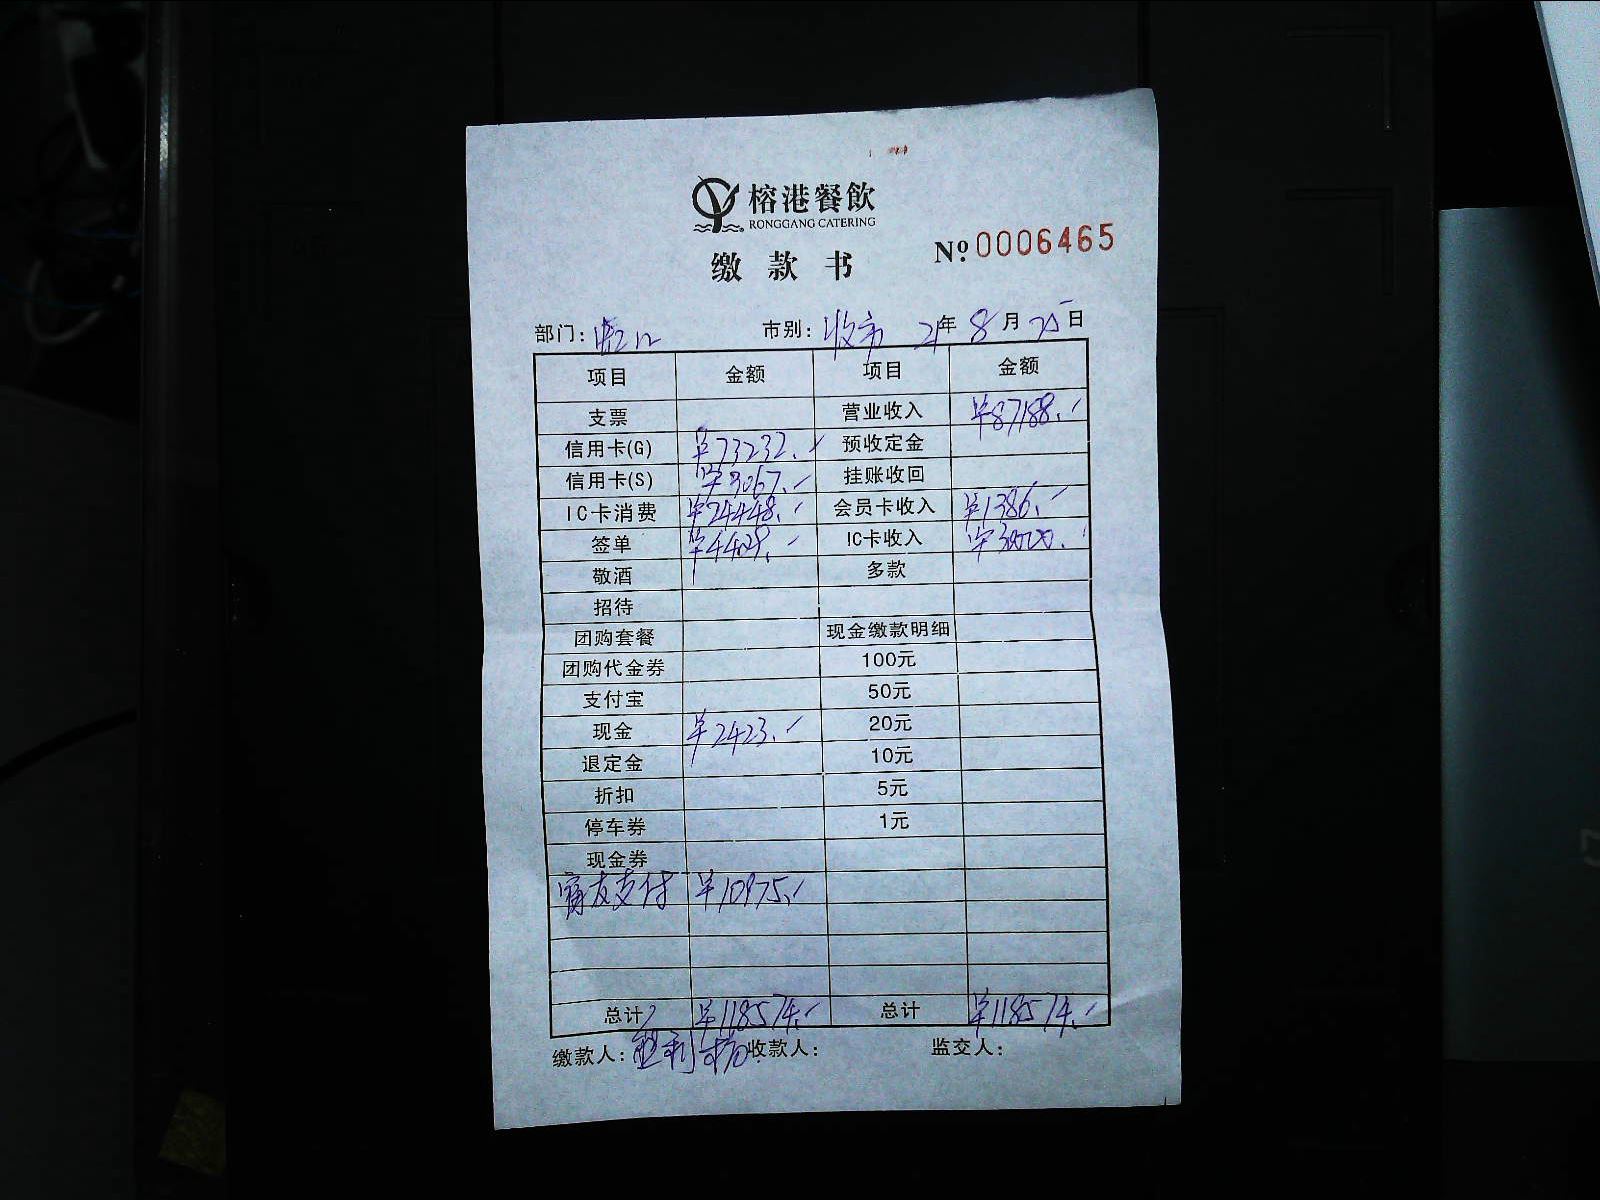 榕港餐飲
RONGGANG CATERING
缴款书
№ 0006465
部门: 市别: 收市 21年 8月 25日
项目 金额 项目 金额
支票 营业收入 ¥87188.-
信用卡(G) ¥73232.- 预收定金
信用卡(S) ¥3067.- 挂账收回
IC卡消费 ¥24448.- 会员卡收入 ¥1386.-
签单 ¥4429.- IC卡收入 ¥30000.-
敬酒 多款
招待
团购套餐 现金缴款明细
团购代金券 100元
支付宝 50元
现金 ¥2423.- 20元
退定金 10元
折扣 5元
停车券 1元
现金券
商友支付 ¥10975.-
总计 ¥118574.- 总计 ¥118574.-
缴款人: 收款人: 监交人: